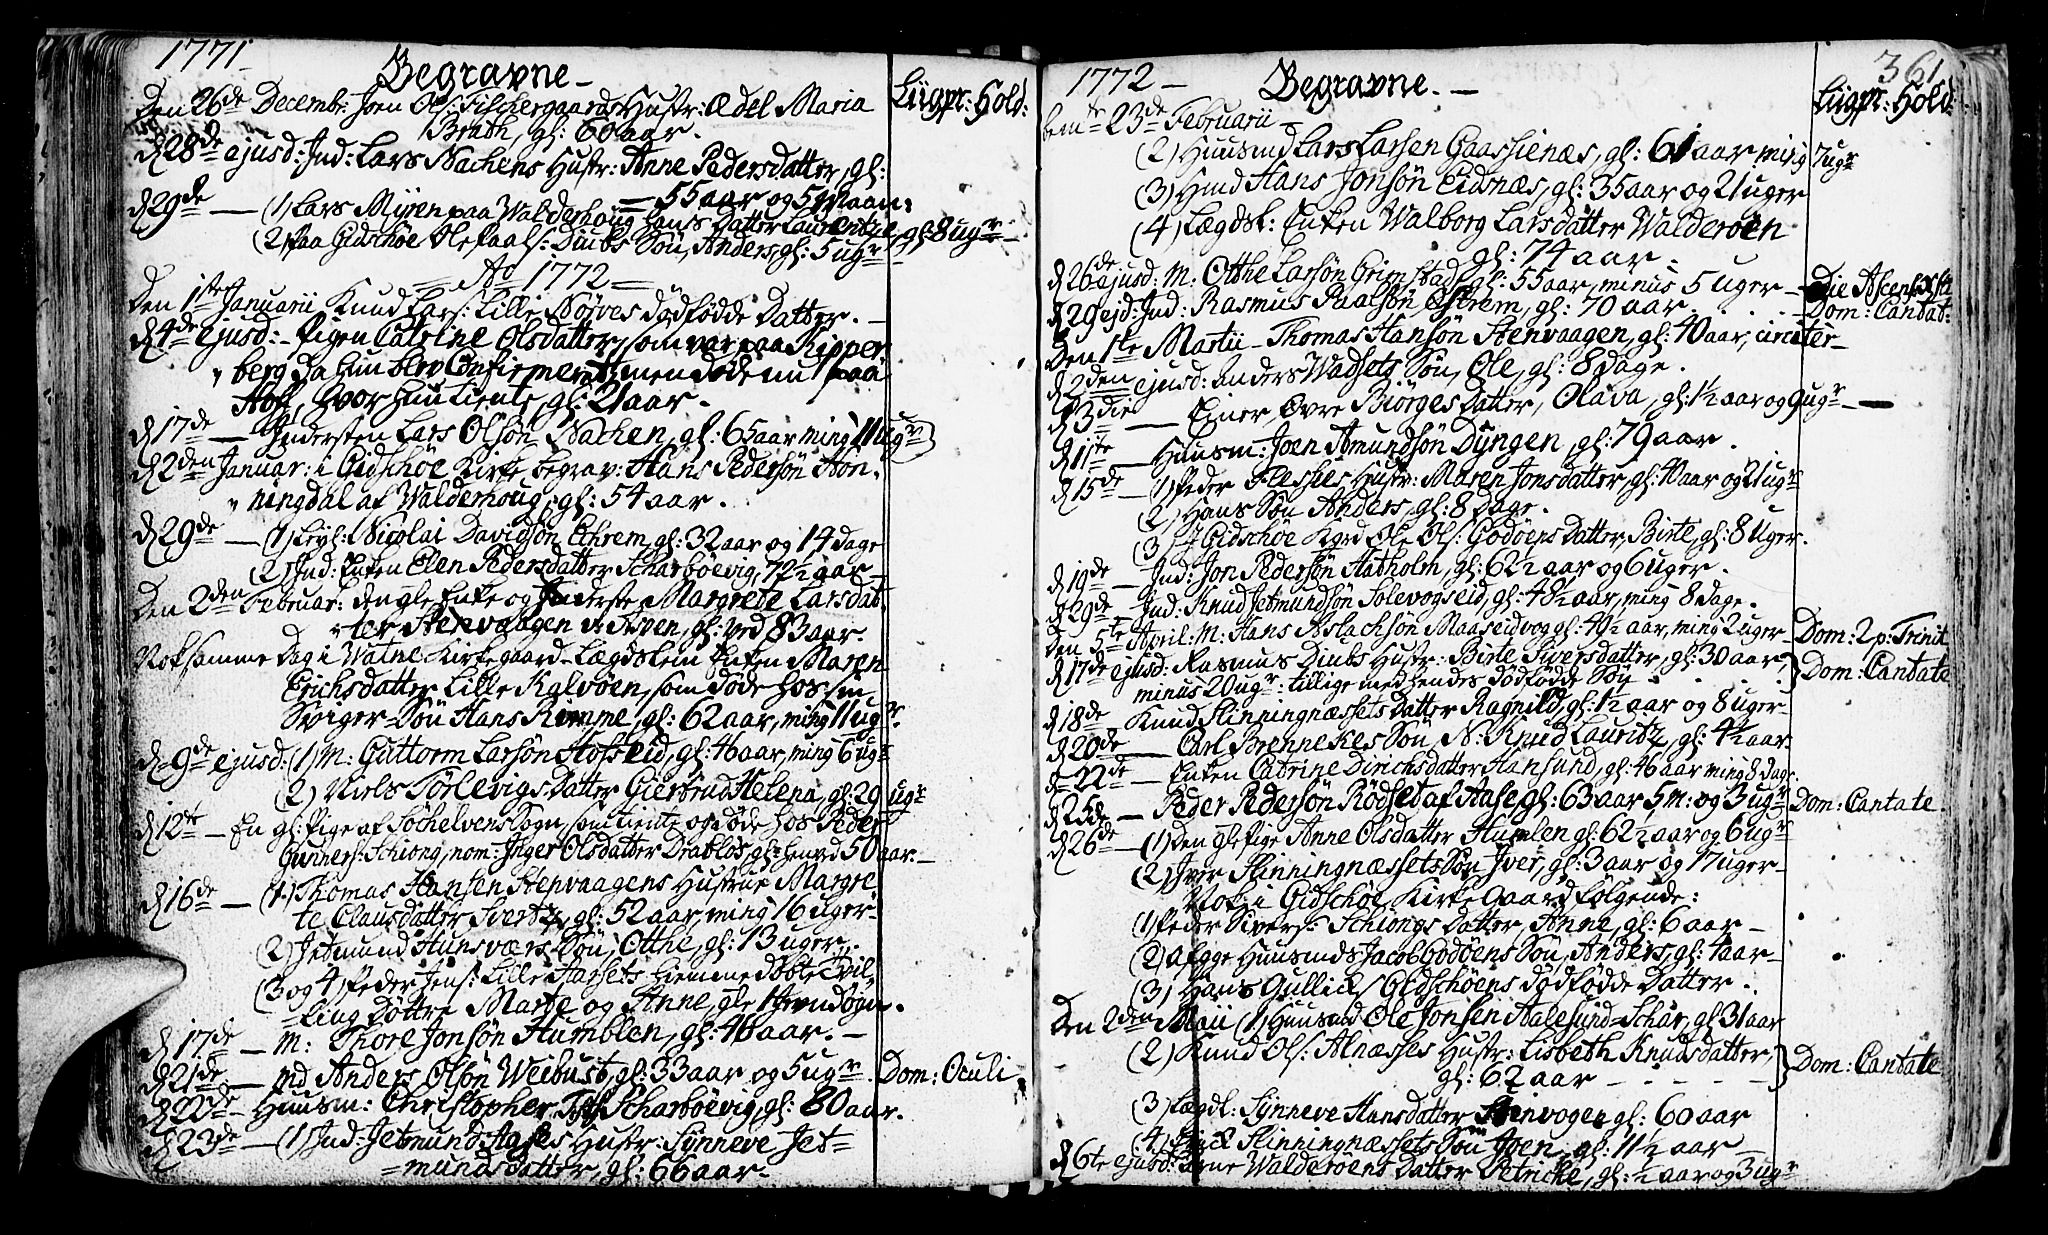 1771.
Begravne - Liigpr: Hold:
Den 26de Decembr: Joen Ols: Fischergaards Hustr: Ædel Maria
Brath, gl: 60 aar.
d 28de ejusd: Ind: Lars Nachens Hustr: Anne Pedersdatter, gl:
55 aar og 5 Maan:
d 29de — (1) Lars Myren paa Walderhoug hans Datter Laurentze, gl: 8 ugr
(2) paa Gidschöe Ole Paals: Diubs Sön, Anders, gl: 5 ugr
Ao 1772
Den 1ste Januarii Knud Lars: Lille Nörves dödfödde Datter. —
d 4de ejusd: - Pigen Catrine Olsdatter, som var paa Kipper
berg da hun blev Confirmeret men döde nu paa
Hof, hvor hun tiente, gl: 21 aar.
d 17de — Indersten Lars Olsön Nachen, gl: 65 aar ming 11 ugr
d 2den Januar: i Gidschöe Kirke begrav: Hans Pedersön Hon-
ningdal af Walderhoug, gl: 54 aar.
d 29de — (1) Leyl: Nicolai Davidsön Echrem, gl: 32 aar og 14 dage
(2) Ind: Enken Elen Pedersdatter Scharböevig, 77½ aar
Den 2den Februar: den gle Enke og Inderste Margrete Larsdat-
ter Stenvaagen v: Aspen, gl: ved 83 aar.
Nok samme Dag i Watne Kirkegaard - Lægdslem Enken Maren
Erichsdatter Lille Kalvöen, som döde hos sin
Sviger-Sön Hans Rimme, gl: 62 aar, ming 11 ugr.
d 9de ejusd: (1) M: Guttorm Larsön Hofseid, gl: 46 aar, ming 6 ugr
(2) Niels Sörlevigs Datter Giertrud Helena, gl: 29 ugr
d 12te — En gl: Pige af Söchelvens Sogn, som tiente og döde hos Peder
Gunners: Schiong, nom: Inger Olsdatter Drablös, gl: henved 50 aar. —
d 16de — (1) Thomas Hansen Stenvaagens Hustrue Margre-
te Clausdatter Svertz, gl: 52 aar, ming 16 uger-
(2) Jetmund Hunsværs Sön, Otthe, gl: 13 uger
(3 og 4) Peder Jens: Lille Aarsets hiemme döbte Tvil-
ling Döttre Marte og Anne, gle 1 Jevndögn.
d 17de — M: Thore Jonsön Humblen, gl: 46 aar. —
d 21de — md Anders Olsön Weibust, gl: 33 aar og 5 ugr Dom: Oculi
d 22de — Huusm: Christopher Scharböevig, gl: 80 aar.
d 23de — (1) Ind: Jetmund Aases Hustr: Synneve Jet-
munds datter, gl: 66 aar.
361
1772 — Begravne. — Liigpr: Hold:
bemte 23de Februarii —
(2) Huusmd Lars Larsen Gaassienæs, gl: 61 aar ming 7 ugr
(3) Hmd Hans Jonsön Eidsnæs, gl: 35 aar og 21 uger
(4) Lægdsl: Enken Walborg Larsdatter Walderöen
gl: 74 aar.
d 26de ejusd: M: Otthe Larsön Grimstad, gl: 55 aar, minus 5 uger — Die Ascens: Xsti
d 29 ejd: Ind: Rasmus Paalsön Østrem, gl: 70 aar. — Dom: Cantat:
Den 1te Martii - Thomas Hansön Stenvaagen, gl: 40 aar, circiter —
d 2den ejusd: Anders Wadsets Sön, Ole, gl: 8 Dage.
d 3die — Einer Øvre Biörges Datter, Olava, gl: 1½ aar og 9 ugr —
d 11te — Huusm: Joen Amundsön Dyngen, gl: 79 aar.
d 15de — (1) Peder Flessies Hustr: Maren Jonsdatter, gl: 40 aar og 21 ugr
(2) Hans Sön Anders, gl: 8 Dage.
(3) I Gidschöe Kgrd Ole Ols: Godöens Datter, Birte, gl: 8 Uger.
d 19de — Ind: Jon Pedersön Hatholm, gl: 62½ aar og 6 uger.
d 29de — Ind: Knud Jetmundsön Solevogseid, gl: 48½ aar, ming 8 dage.
Den 5te April: M: Hans Aslachsön Maaseidvog gl: 49½ aar, ming 2 uger — Dom: 2 p: Trinit
d 17de ejusd: Rasmus Diubs Hustr: Birte Siversdatter, gl: 30 aar, } Dom: Cantate
minus 20 ugr: tillige med hendes dödfödde Sön
d 18de Knud Slinningnæssets Datter Ragnild, gl: 1½ aar og 8 uger —
d 20de — Carl Brennekes Sön, N: Knud Lauritz, gl: 4½ aar
d 22de — Enken Catrine Dirichsdatter Hansund, gl: 46 aar ming 8 dage.
d 25de — Peder Pedersön Rödset af Aase gl: 63 aar, 5 m: og 3 ugr Dom: Cantate.
d 26de — (1) Den gle Pige Anne Olsdatter Humlen gl: 62½ aar og 6 ugr
(2) Iver Slinningnæssets Sön Iver, gl: 3 aar og 17 uger —
Nok i Gidschöe Kirke Gaard fölgende:
(1) Peder Sivers: Schiongs Datter, Anne, gl: 6 aar —
(2) Afgge Huusmds Jacob Godöens Sön, Anders, gl: 4 aar —
(3) Hans Gullicks: Gidschöens dödfödde Datter.
Den 2den Maii (1) Huusmd Ole Jonsen Aalesund-Schar, gl: 31 aar
(2) Knud Ols: Alnæsses Hustr: Lisbeth Knudsdatter, } Dom: Cantate
gl: 62 aar — — —
(3) Lægdl: Synneve Hansdatter Stenvogen, gl: 60 aar
(4) Erick Slinningnæssets Sön Joen, gl: 11½ aar —
d 6te ejusd: Arne Walderöens Datter Petricke, gl: ½ aar og 3 ugr